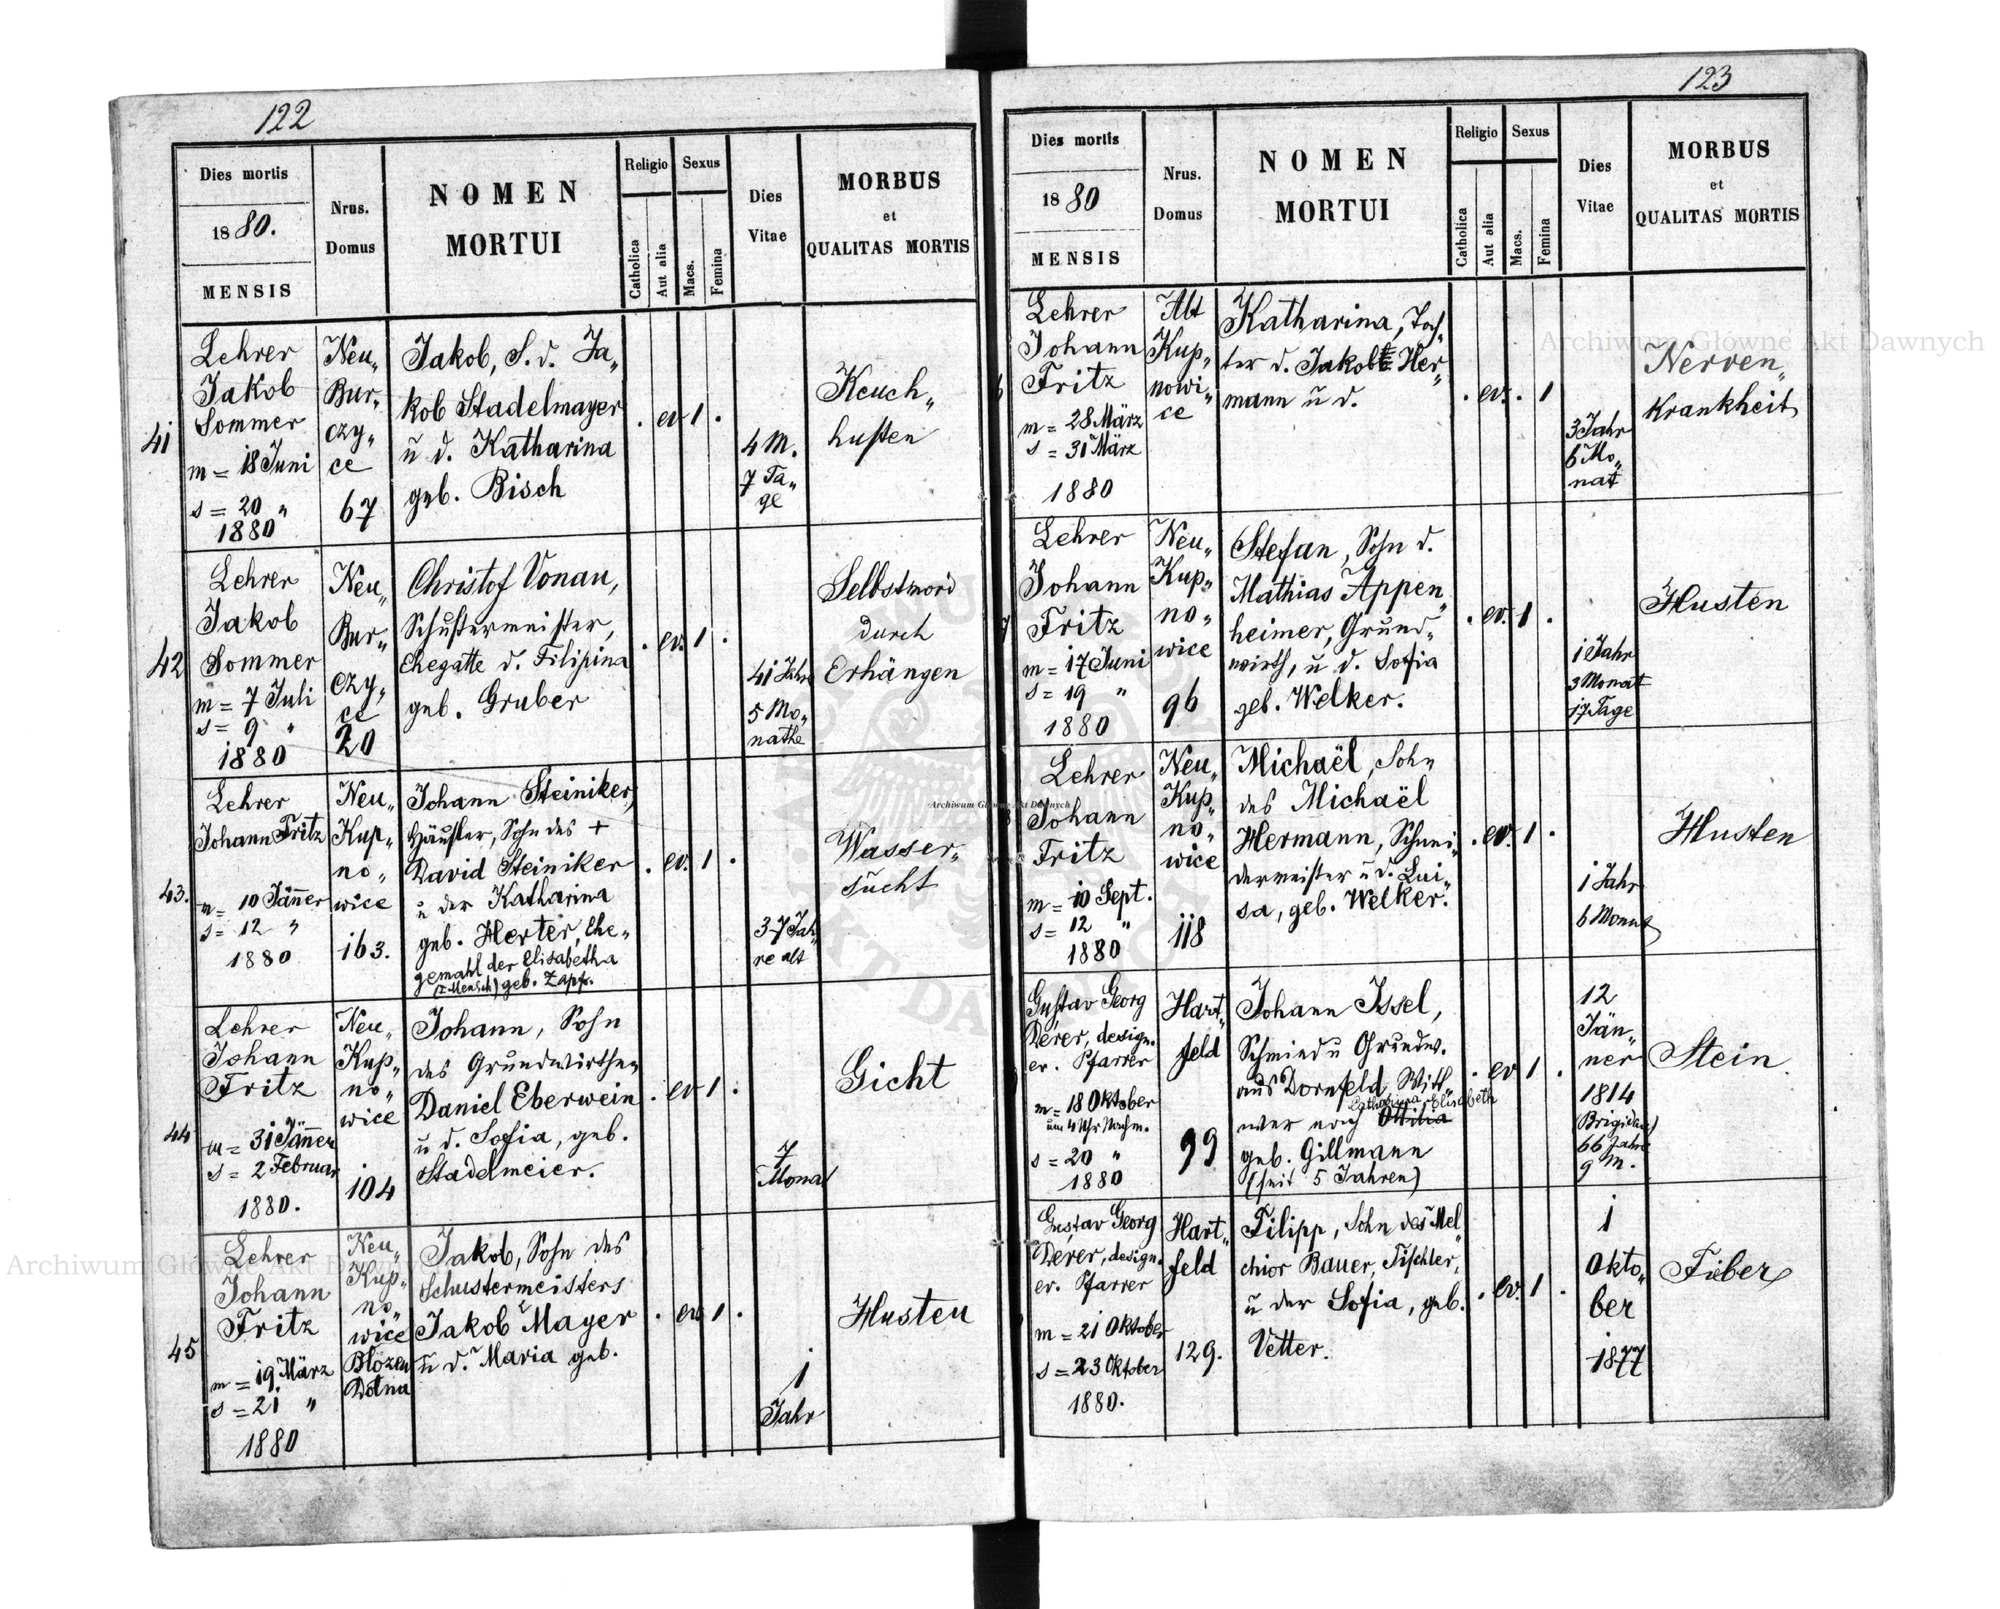 122
Dies mortis
1880.
MENSIS
Nrus.
Domus
NOMEN
MORTUI
Religio
Catholica
Aut alia
Sexus
Macs.
Femina
Dies
Vitae
MORBUS
et
QUALITAS MORTIS
41
Lehrer
Jakob
Sommer
m = 18 Juni
s = 20 "
1880
Neu„
Bur„
czy„
ce
67
Jakob, S. d. Ja„
kob Stadelmayer
u d. Katharina
geb. Bisch
. ev 1 .
4 M.
7 Ta„
ge
Keuch„
husten
42
Lehrer
Jakob
Sommer
m = 7 Juli
s = 9 "
1880
Neu„
Bur„
czy„
ce
20
Christof Vonau,
Schustermeister,
Ehegatte d. Filipina
geb. Gruber
. ev. 1 .
41 Jahre
5 Mo„
nathe
Selbstmord
durch
Erhängen
43.
Lehrer
Johann Fritz
m = 10 Jänner
s = 12 "
1880
Neu„
Kup„
no„
wice
163.
Johann Steiniker,
Häusler, Sohn des +
David Steiniker
u der Katharina
geb. Herter, Ehe„
gemahl der Elisabetha
(I. Mensch) geb. Zapf.
. ev. 1 .
37 Jah„
re alt
Wasser„
sucht
44
Lehrer
Johann
Fritz
m = 31 Jänner
s = 2 Februar
1880.
Neu„
Kup„
no„
wice
104
Johann, Sohn
des Grundwirthen
Daniel Eberwein
u d. Sofia, geb.
Stadelmeier.
. ev 1 .
7
Monat
Gicht
45
Lehrer
Johann
Fritz
m = 19 März
s = 21 "
1880
Neu„
Kup„
no„
wice
Blozen
Dolna
Jakob, Sohn des
Schustermeisters
Jakob Mayer
u d. Maria geb.
. ev 1 .
1
Jahr
Husten
123
Dies mortis
1880
MENSIS
Nrus.
Domus
NOMEN
MORTUI
Religio
Catholica
Aut alia
Sexus
Macs.
Femina
Dies
Vitae
MORBUS
et
QUALITAS MORTIS
6
Lehrer
Johann
Fritz
m = 28 März
s = 31 März
1880
Alt
Kup„
nowi„
ce
Katharina, Toch„
ter d. Jakob Her„
mann u d.
. ev. . 1
3 Jahr
6 Mo„
nat
Nerven„
krankheit
7
Lehrer
Johann
Fritz
m = 17 Juni
s = 19 "
1880
Neu„
Kup„
no„
wice
96
Stefan, Sohn d.
Mathias Appen„
heimer, Grund„
wirth, u d. Sofia
geb. Welker.
. ev. 1 .
1 Jahr
3 Monat
17 Tage
Husten
Lehrer
Johann
Fritz
m = 10 Sept.
s = 12 "
1880
Neu„
Kup„
no„
wice
118
Michaël, Sohn
des Michaël
Hermann, Schnei„
dermeister u d. Lui„
sa, geb. Welker.
. ev. 1 .
1 Jahr
6 Monat
Husten
Gustav Georg
Derer, design.
ev. Pfarrer
m = 18 Oktober
um 4 Uhr Nachm.
s = 20 "
1880
Hart„
feld
99
Johann Issel,
Schmied u Grundw.
aus Dornfeld, Witt„
Catharina Elisabeth
wer nach Ottilia
geb. Gillmann
(seit 5 Jahren)
. ev 1 .
12
Jän„
ner
1814
Brigidau
66 Jahre
9 M.
Stein
Gustav Georg
Derer, design.
ev. Pfarrer
m = 21 Oktober
s = 23 Oktober
1880.
Hart„
feld
129.
Filipp, Sohn des Mel„
chior Bauer, Tischler,
u der Sofia, geb.
Vetter.
. ev. 1 .
1
Okto„
ber
1877
Fieber
Archiwum Główne Akt Dawnych
Archiwum Główne Akt Dawnych
Archiwum Główne Akt Dawnych